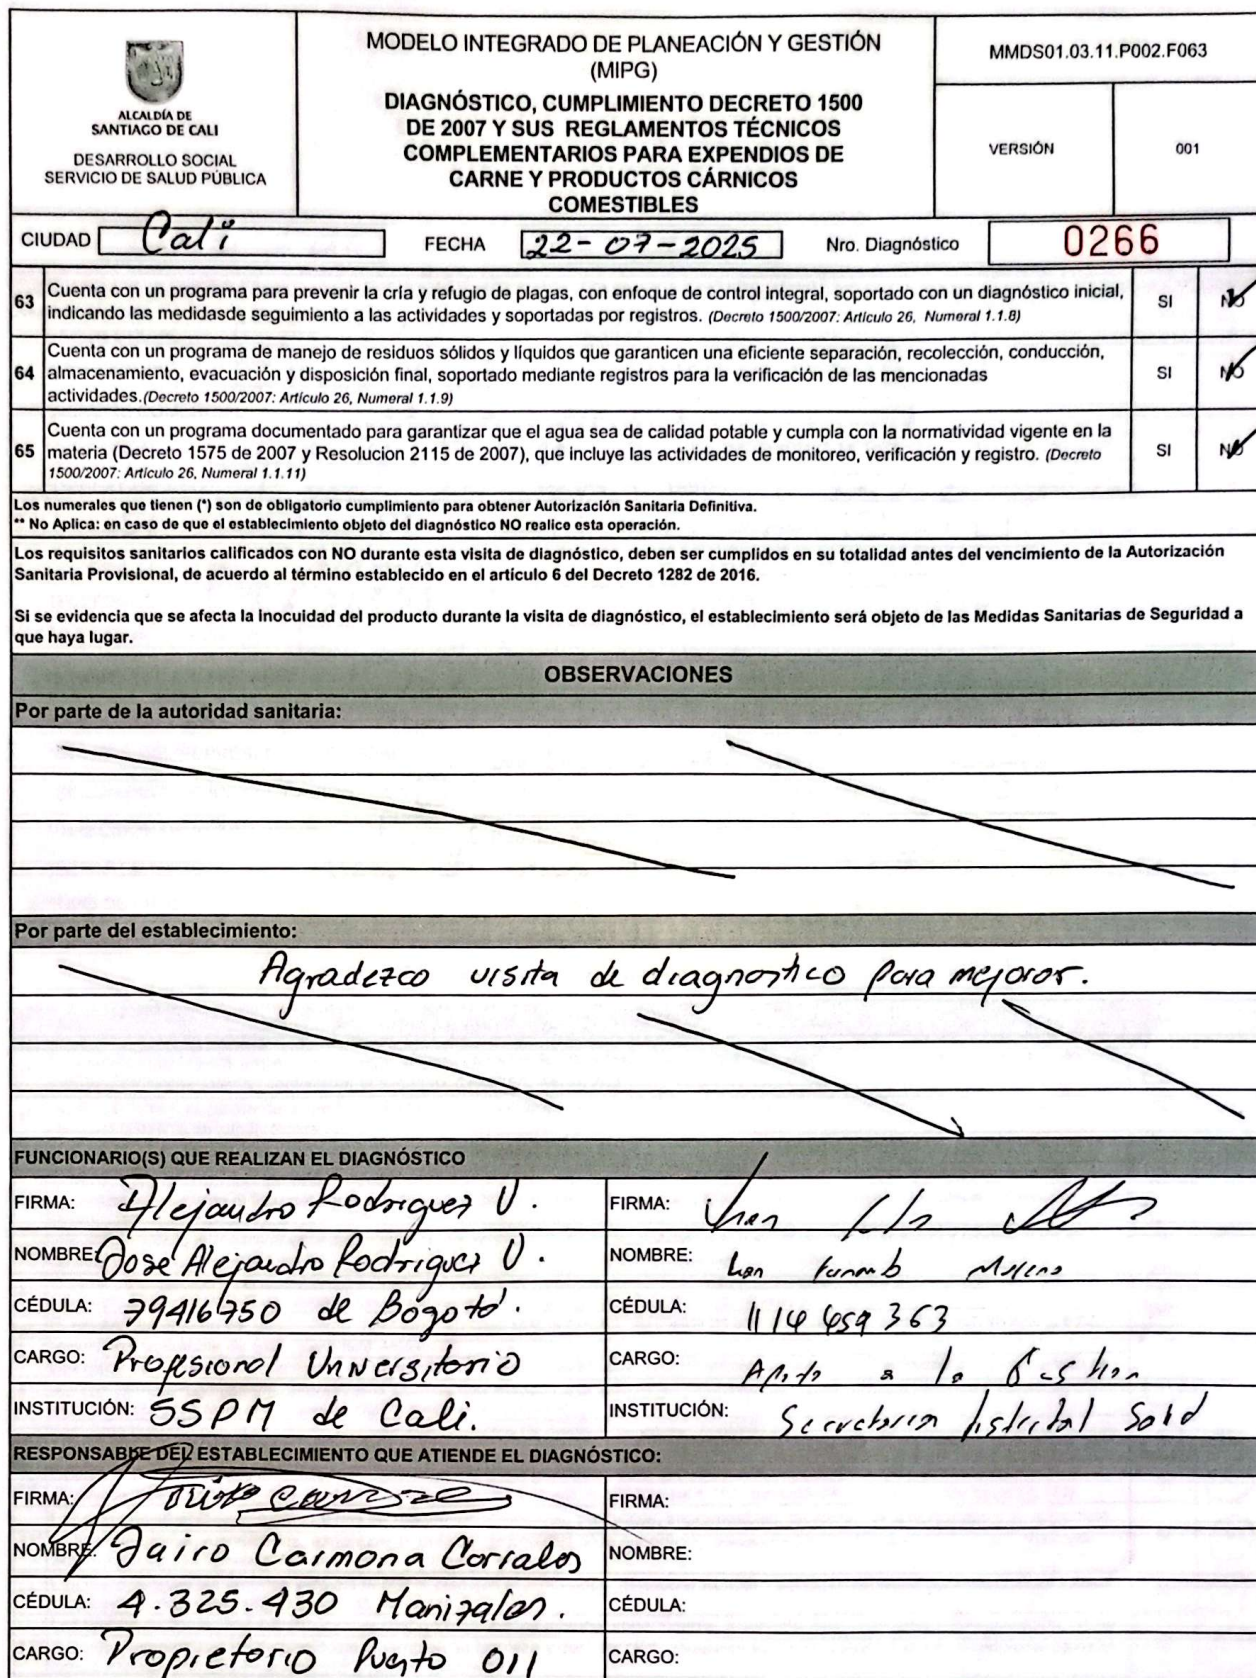 ALCALDÍA DE
SANTIAGO DE CALI
DESARROLLO SOCIAL
SERVICIO DE SALUD PÚBLICA
MODELO INTEGRADO DE PLANEACIÓN Y GESTIÓN
(MIPG)
DIAGNÓSTICO, CUMPLIMIENTO DECRETO 1500
DE 2007 Y SUS REGLAMENTOS TÉCNICOS
COMPLEMENTARIOS PARA EXPENDIOS DE
CARNE Y PRODUCTOS CÁRNICOS
COMESTIBLES
MMDS01.03.11.P002.F063
VERSIÓN 001
CIUDAD Cali FECHA 22-07-2025 Nro. Diagnóstico 0266
63 Cuenta con un programa para prevenir la cría y refugio de plagas, con enfoque de control integral, soportado con un diagnóstico inicial, SI NO
indicando las medidasde seguimiento a las actividades y soportadas por registros. (Decreto 1500/2007: Artículo 26, Numeral 1.1.8)
Cuenta con un programa de manejo de residuos sólidos y líquidos que garanticen una eficiente separación, recolección, conducción,
64 almacenamiento, evacuación y disposición final, soportado mediante registros para la verificación de las mencionadas SI NO
actividades.(Decreto 1500/2007: Artículo 26, Numeral 1.1.9)
Cuenta con un programa documentado para garantizar que el agua sea de calidad potable y cumpla con la normatividad vigente en la
65 materia (Decreto 1575 de 2007 y Resolucion 2115 de 2007), que incluye las actividades de monitoreo, verificación y registro. (Decreto SI NO
1500/2007: Artículo 26, Numeral 1.1.11)
Los numerales que tienen (*) son de obligatorio cumplimiento para obtener Autorización Sanitaria Definitiva.
** No Aplica: en caso de que el establecimiento objeto del diagnóstico NO realice esta operación.
Los requisitos sanitarios calificados con NO durante esta visita de diagnóstico, deben ser cumplidos en su totalidad antes del vencimiento de la Autorización
Sanitaria Provisional, de acuerdo al término establecido en el artículo 6 del Decreto 1282 de 2016.
Si se evidencia que se afecta la inocuidad del producto durante la visita de diagnóstico, el establecimiento será objeto de las Medidas Sanitarias de Seguridad a
que haya lugar.
OBSERVACIONES
Por parte de la autoridad sanitaria:
Por parte del establecimiento:
Agradezco visita de diagnostico para mejorar.
FUNCIONARIO(S) QUE REALIZAN EL DIAGNÓSTICO
FIRMA: Alejandro Rodriguez V. FIRMA:
NOMBRE: Jose Alejandro Rodriguez V. NOMBRE:
CÉDULA: 79416750 de Bogotá. CÉDULA: 1114459363
CARGO: Profesional Universitario CARGO: Apoyo a la Gestion
INSTITUCIÓN: SSPM de Cali. INSTITUCIÓN: Secretaria Distrital Salud
RESPONSABLE DEL ESTABLECIMIENTO QUE ATIENDE EL DIAGNÓSTICO:
FIRMA: FIRMA:
NOMBRE: Jairo Carmona Corrales NOMBRE:
CÉDULA: 4.325.430 Manizales. CÉDULA:
CARGO: Propietario Puesto 011 CARGO: